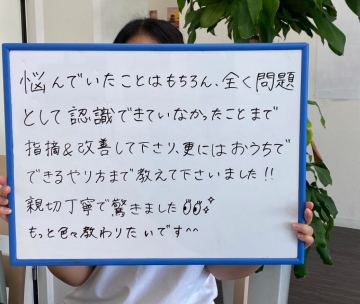 悩んでいたことはもちろん、全く問題
として認識できていなかったことまで
指摘&改善して下さり、更にはおうちで
できるやり方まで教えて下さいました!!
親切丁寧で驚きました
もっと色々教わりたいです^^